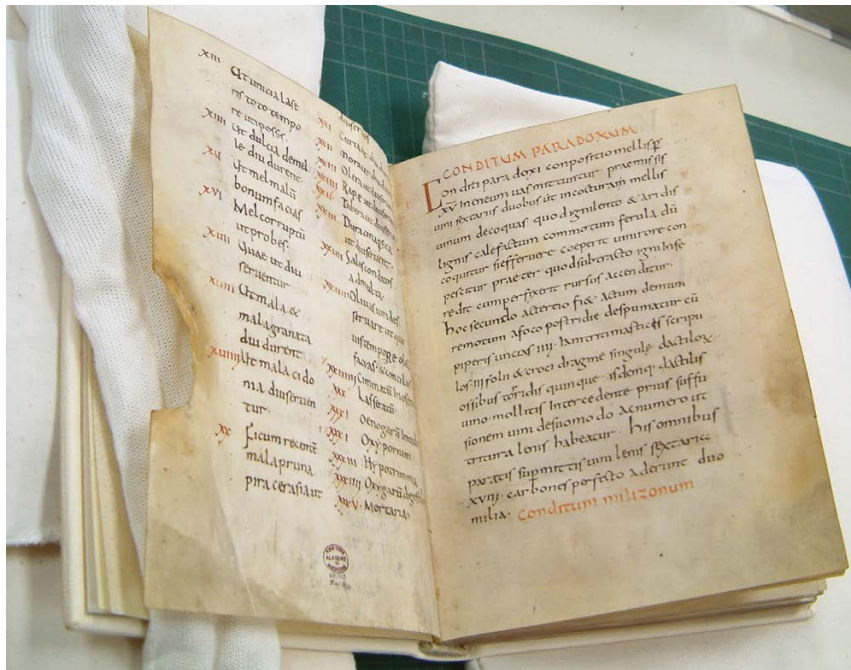 xiii Ut uncia lase
ris toto tempo
re utaris
xiiii Ut dulcia de mel
le diu durent
xv Ut mel malū
bonum facias
xvi Mel corruptū
ut probes
xvii Uvae ut diu
serventur
xviii Ut mala &
mala granata
diu durent
xviiii Ut mala cido
nia diu serven
tur
xx Ficum recentē
mala pruna
pira cerasia ut
diu serves
xxi
xxii
xxiii
xxiiii
ut diu serventur
xxviii Sales conditos
ad multa
xxviiii Olivas virides
servare ut quo
vis tempore oleū
facias
xxx Cuminatū in ostrea
Laseratū
Oenogarū in tubera
Oxyporium
xxxiii Hypotrimma
xxxiiii Oxygarū
xxxv Mortaria
NEW YORK
ACADEMY
OF
MEDICINE
CONDITUM PARADOXUM
Conditi paradoxi conpositio mellis p̄
xv in eneum vas mittuntur praemissis
vini sextariis duobus ut in cocturam mellis
vinum decoquas quod igni lento & aridis
lignis calefactum commotum ferula dū
coquitur si effervere coeperit vini rore con
pescitur praeter quod subtracto igni in se
redit cum perfrixerit rursus accenditur
hoc secundo ac tertio fi& ac tum demum
remotum a foco post ridie despumatur cū
piperis uncias iiii iam triti masticis scripu
los iii folii & croci dragme singule dactilo
ossibus torridis quinque isdemq: dactilis
vino mollitis intercedente prius suffu
sionem vini de suo modo ac numero ut
tritura lenis habeatur his omnibus
paratis supmittis vini lenis sextaria
xviii carbones perfecto aderunt duo
milia. Conditum milizonum